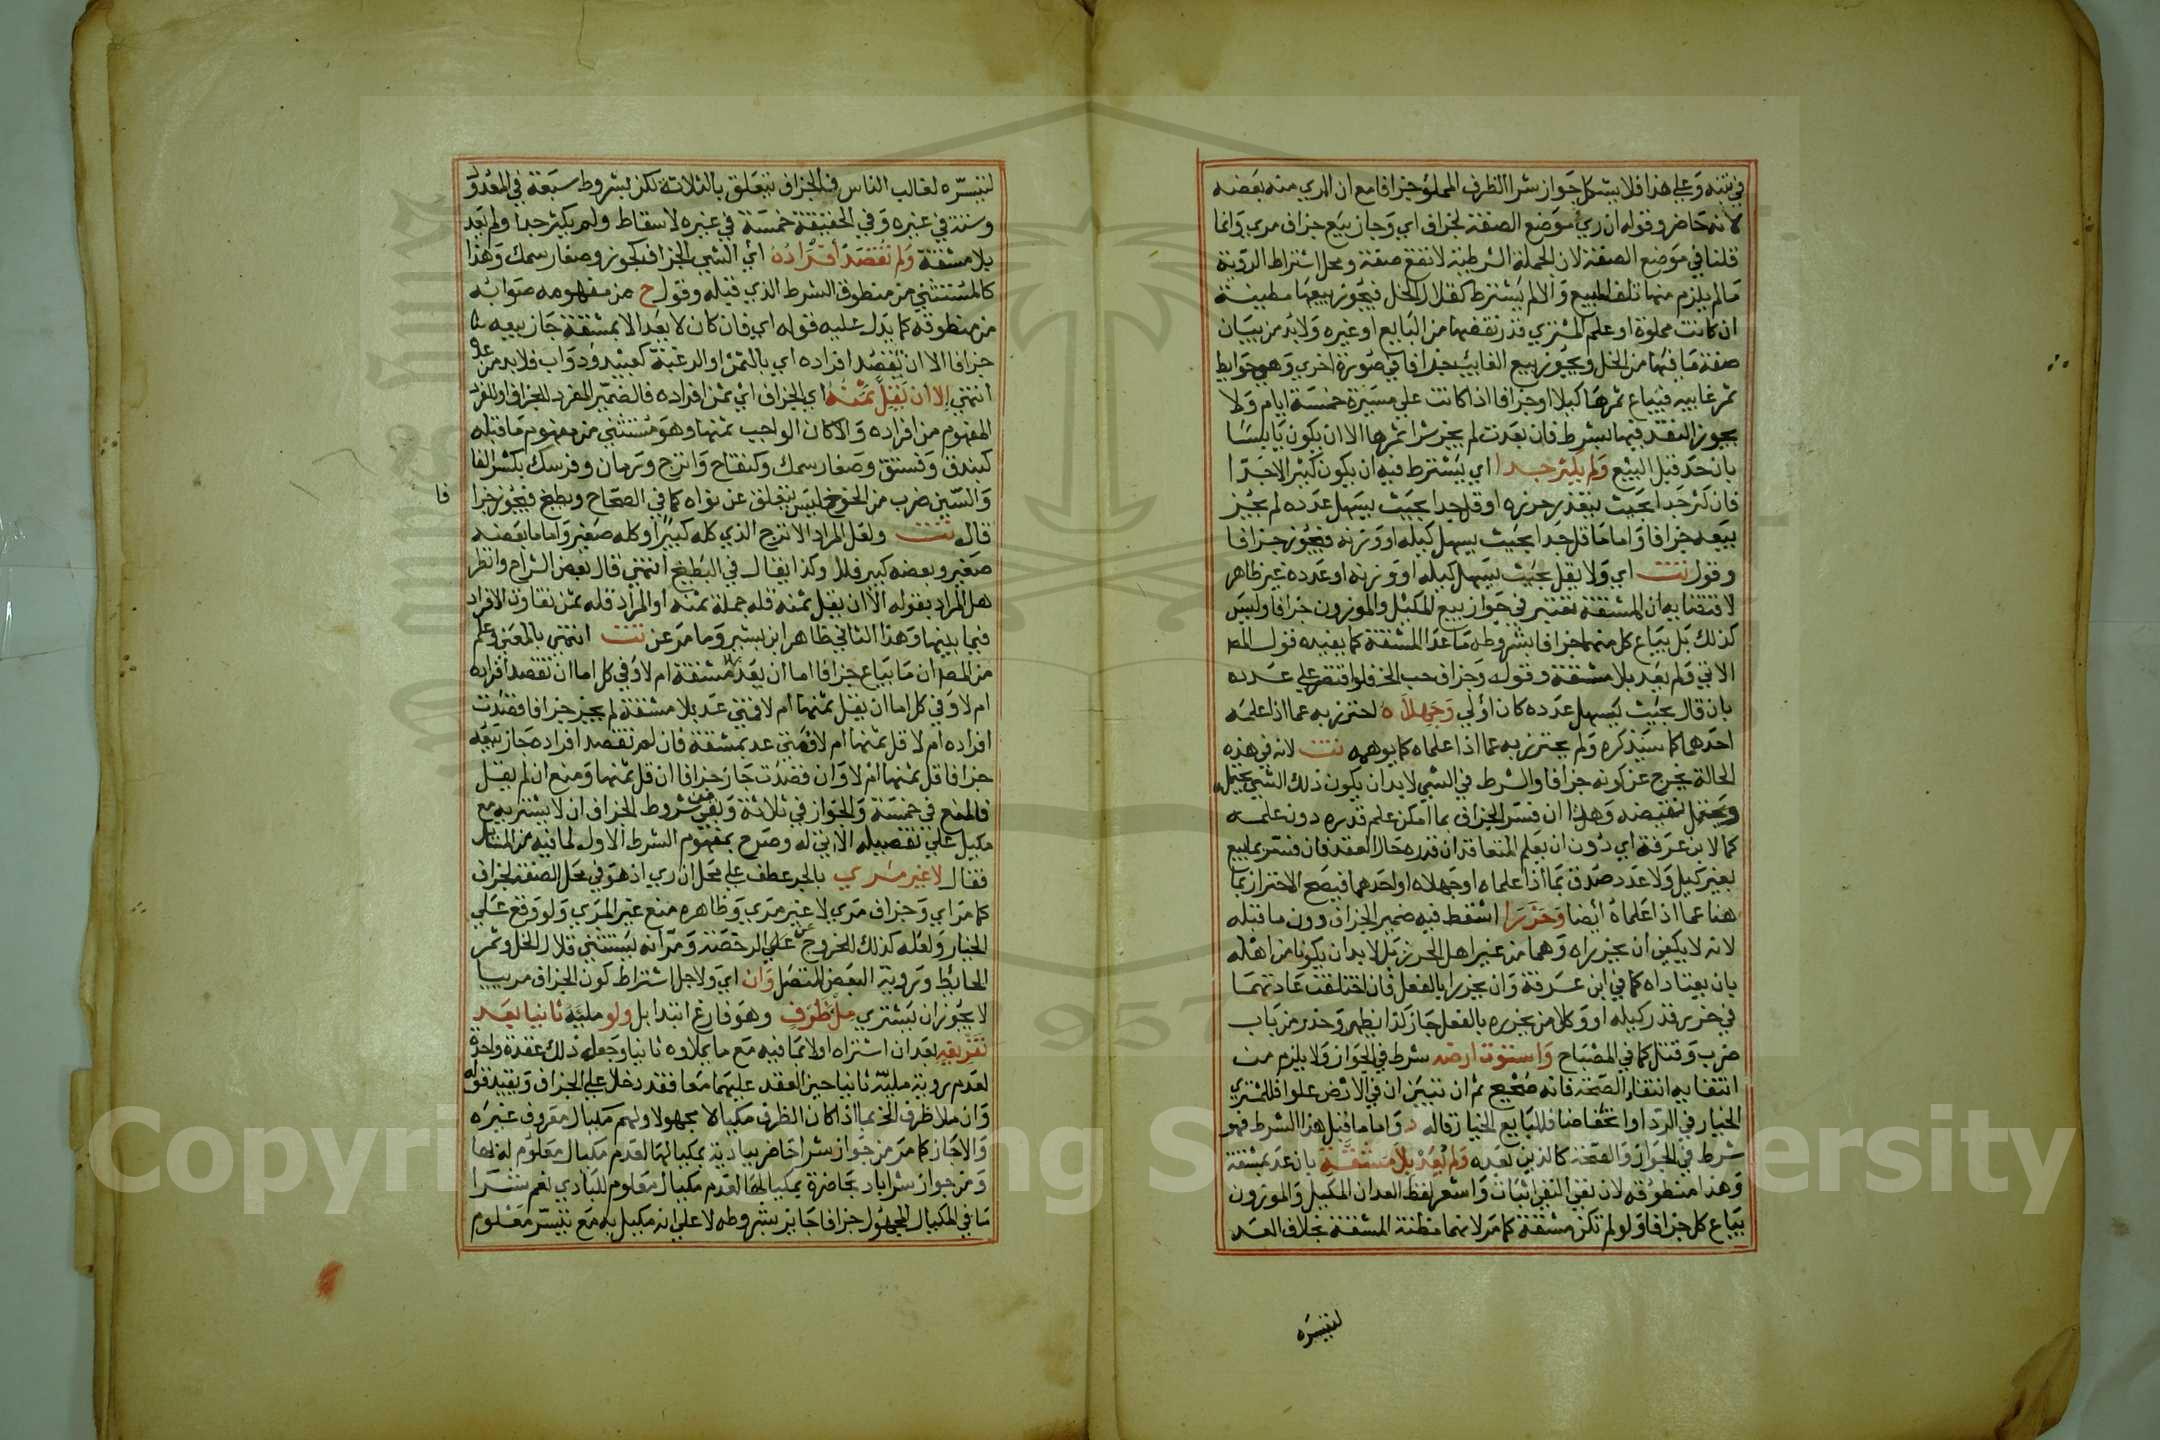 في بيته وعلي هذا فلا يشكل جواز شرا الظرف المملو جزافا مع ان المري منه بعضه
لانه حاضر وقوله ان ري موضع الصفة لجزاف اي وجاز بيع جزاف مري وانما
قلنا في موضع الصفة لان الجملة الشرطية لا تقع صفة ومحل اشتراط الروية
مالم يلزم منها تلف المبيع والا لم يشترط كقلال الخل فيجوز بيعها مطينة
ان كانت مملوة او علم المشتري قدر نقصها من البايع او غيره ولابد من بيان
صفة ما فيها من الخل ويجوز بيع الغايب جزافا في صورة اخري وهو حوايط
تمر غايبه فيباع تمرها كيلا او جزافا اذا كانت علي مسيرة خمسة ايام ولا
يجوز النقد فيها بشرط فان بعدت لم يجز شرا تمرها الا ان يكون يابسا
بان جد قبل البيع ولم يكثر جدا اي يشترط فيه ان يكون كثيرا لا جدا
فان كثر جدا بحيث يتعذر حزره او قل جدا بحيث يسهل عدده لم يجز
بيعه جزافا واما ما قل جدا بحيث يسهل كيله او وزنه فيجوز جزافا
وقول تت اي ولا يقل بحيث يسهل كيله او وزنه او عدده غير ظاهر
لاقتضايه ان المشقة تعتبر في جواز بيع المكيل والموزون جزافا وليس
كذلك بل يباع كل منهما جزافا بشروطه ما عدا المشقة كما يفيده قول المص
الاتي ولم يعد بلا مشقة وقوله وجزاف حب الخ فلو اقتصر علي عدده
بان قال بحيث يسهل عدده كان اولي وجهلاه احترز به عما اذا علمه
احدهما كما سيذكره ولم يحترز به عما اذا علماه كما يوهمه تت لانه في هذه
الحالة يخرج عن كونه جزافا والشرط في الشي لابد ان يكون ذلك الشي يحتمله
ويحتمل نقيضه وهذا ان فسر الجزاف بما امكن علم قدره دون علمه
كما لابن عرفة اي دون ان يعلم المتعاقدان قدره حال العقد فان فسر بما بيع
بغير كيل ولا عدد صدق بما اذا علماه او جهلاه او احدهما فيصح الاحتراز بما
هنا عما اذا علماه ايضا وحزرا اسقط فيه ضمير الجزاف دون ما قبله
لانه لا يكفي ان يحزراه وهما من غير اهل الحرز بل لابد ان يكونا من اهله
بان يعتاداه كما في ابن عرفة وان يحزرا بالفعل فان اختلفت عادتهما
في حزر قدر كيله او وكلا من يحزره بالفعل جاز كذا يظهر وحزر من باب
ضرب وقتل كما في المصباح واستوت ارضه شرط في الجواز ولا يلزم من
انتفايه انتفا الصحة فانه صحيح ثم ان تبين ان في الارض علوا فللمشتري
الخيار في الرد او انخفاضا فللبايع الخيار قاله د واما ما قبل هذا الشرط فهو
شرط في الجواز والصحة كالذين بعده ولم يعد بلا مشقة بان عد بمشقة
وهذا منطوقه لان نفي النفي اثبات واشعر لفظ العد ان المكيل والموزون
يباع كل جزافا ولو لم تكن مشقة كما مر لانهما مظنة المشقة بخلاف العد
لتيسره
لتيسره لغالب الناس فالجزاف يتعلق بالثلاثة لكن بشروط سبعة في المعدود
وستة في غيره وفي الحقيقة خمسة في غيره لاسقاط ولم يكثر جدا ولم يعد
بلا مشقة ولم تقصد افراده اي الشي الجزاف كجوز وصغار سمك وهذا
كالمستثني من منطوق الشرط الذي قبله وقول ح من مفهومه صوابه
من منطوقه كما يدل عليه قوله اي فان كان لا يعد الا بمشقة جاز بيعه
جزافا الا ان تقصد افراده اي بالثمن او الرغبة كعبيد ودواب فلابد من عده
انتهي الا ان يقل ثمنه اي الجزاف اي ثمن افراده فالضمير المفرد للجزاف او للفرد
المفهوم من افراده والا كان الواجب ثمنها وهو مستثني من مفهوم ما قبله
كبندق وفستق وصغار سمك وكتفاح واترج ورمان وفرسك بكسر الفا
والسين ضرب من الخوخ ليس يتفلق عن نواه كما في الصحاح وبطيخ فيجوز جزا
فا
قاله تت ولعل المراد الاترج الذي كله كبير او كله صغير واما ما بعضه
صغير وبعضه كبير فلا وكذا يقال في البطيخ انتهي قال بعض الشراح وانظر
هل المراد بقوله الا ان يقل ثمنه قلة جملة ثمنه او المراد قلة ثمن تفاوت الافراد
فيما بينها وهذا الثاني ظاهر ابن بشير وما مر عن تت انتهي بالمعني وعلم
من المصا ان ما يباع جزافا اما ان يعد بلا مشقة ام لا وفي كل اما ان تقصد افراده
ام لا وفي كل اما ان يقل ثمنها ام لا فمتي عد بلا مشقة لم يجز جزافا قصدت
افراده ام لا قل ثمنها ام لا ومتي عد بمشقة فان لم تقصد افراده جاز بيعه
جزافا قل ثمنها ام لا وان قصدت جاز جزافا ان قل ثمنها ومنع ان لم يقل
فالمنع في خمسة والجواز في ثلاثة وبقي من شروط الجزاف ان لا يشتريه مع
مكيل علي تفصيله الاتي له وصرح بمفهوم الشرط الاول لما فيه من المسايل
فقال لا غير مري بالجر عطف علي محل ان ري اذ هو في محل الصفة لجزاف
كما مر اي وجزاف مري لا غير مري وظاهره منع غير المري ولو وقع علي
الخيار ولعله كذلك للخروج عن علي الرخصة ومر انه يستثني قلال الخل وتمر
الحايط وروية البعض المتصل وان اي ولاجل اشتراط كون الجزاف مرييا
لا يجوز ان يشتري مل ظرف وهو فارغ ابتدا بل ولو مليه ثانيا بعد
تفريغه بعد ان اشتراه اولا بما فيه مع ما يملاوه ثانيا وجعل ذلك عقدة واحدة
لعدم روية مليه ثانيا حين العقد عليهما معا فقد دخلا علي الجزاف ويقيد قوله
وان ملا ظرف الخ بما اذا كان الظرف مكيالا مجهولا ولهم مكيال معروف غيره
والا جاز كما مر من جواز شرا حاضر ببادية بمكيالها لعدم مكيال معلوم له بها
ومن جواز شرا باد بحاضرة بمكيالها لعدم مكيال معلوم للبادي نعم شرا
ما في المكيال المجهول جزافا جايز بشروطه لا علي انه مكيل به مع تيسر معلوم
Copyright © King Saud University